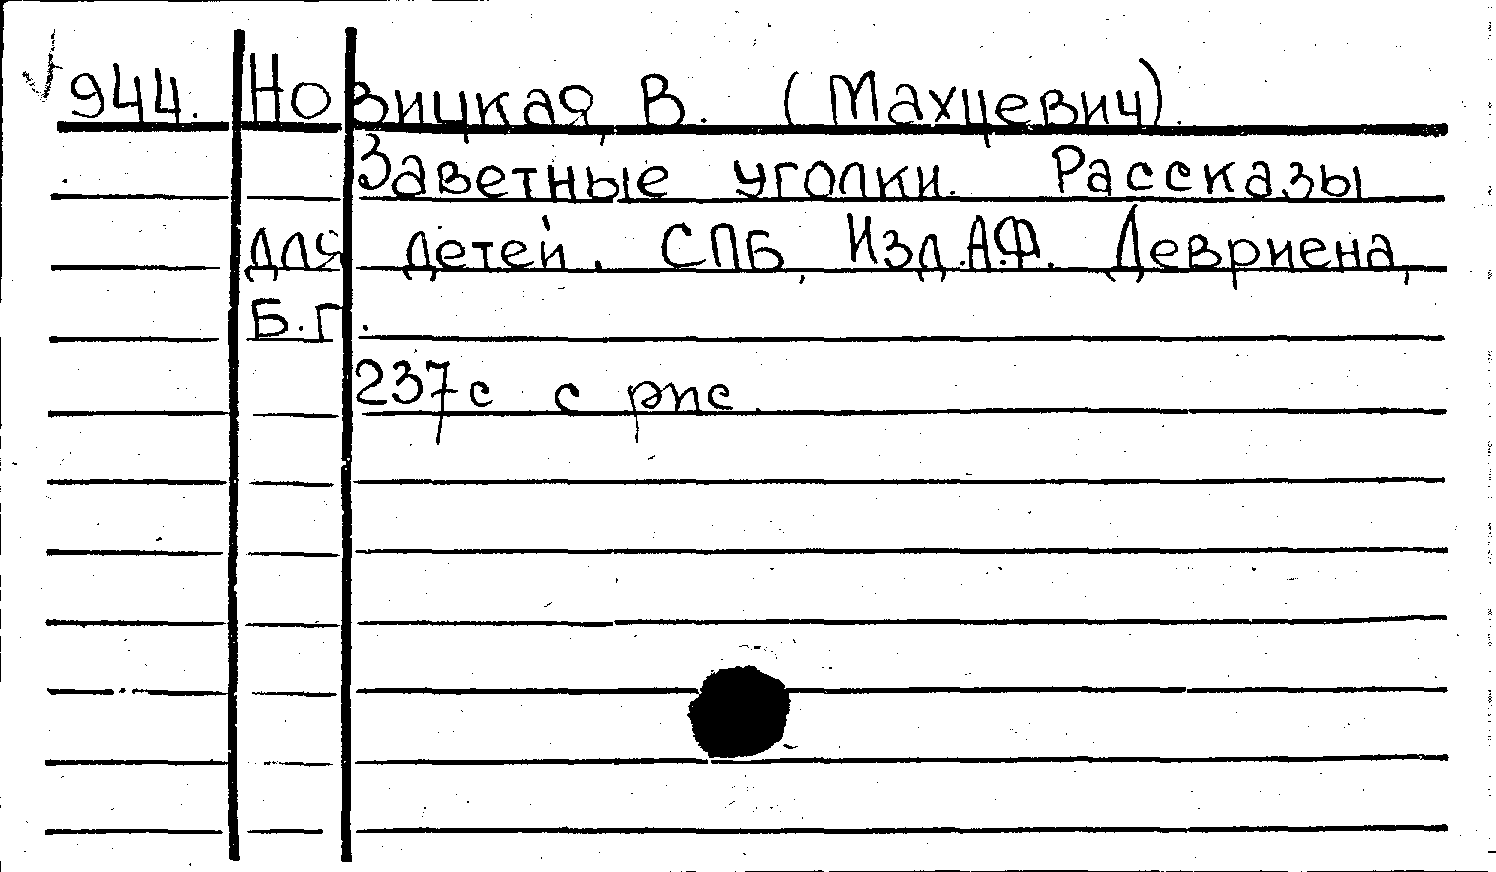 944. Новицкая, В. (Махцевич).
Заветные уголки. Рассказы
для детей. СПБ, Изд. А.Ф. Девриена,
Б.г.
237с с рис.